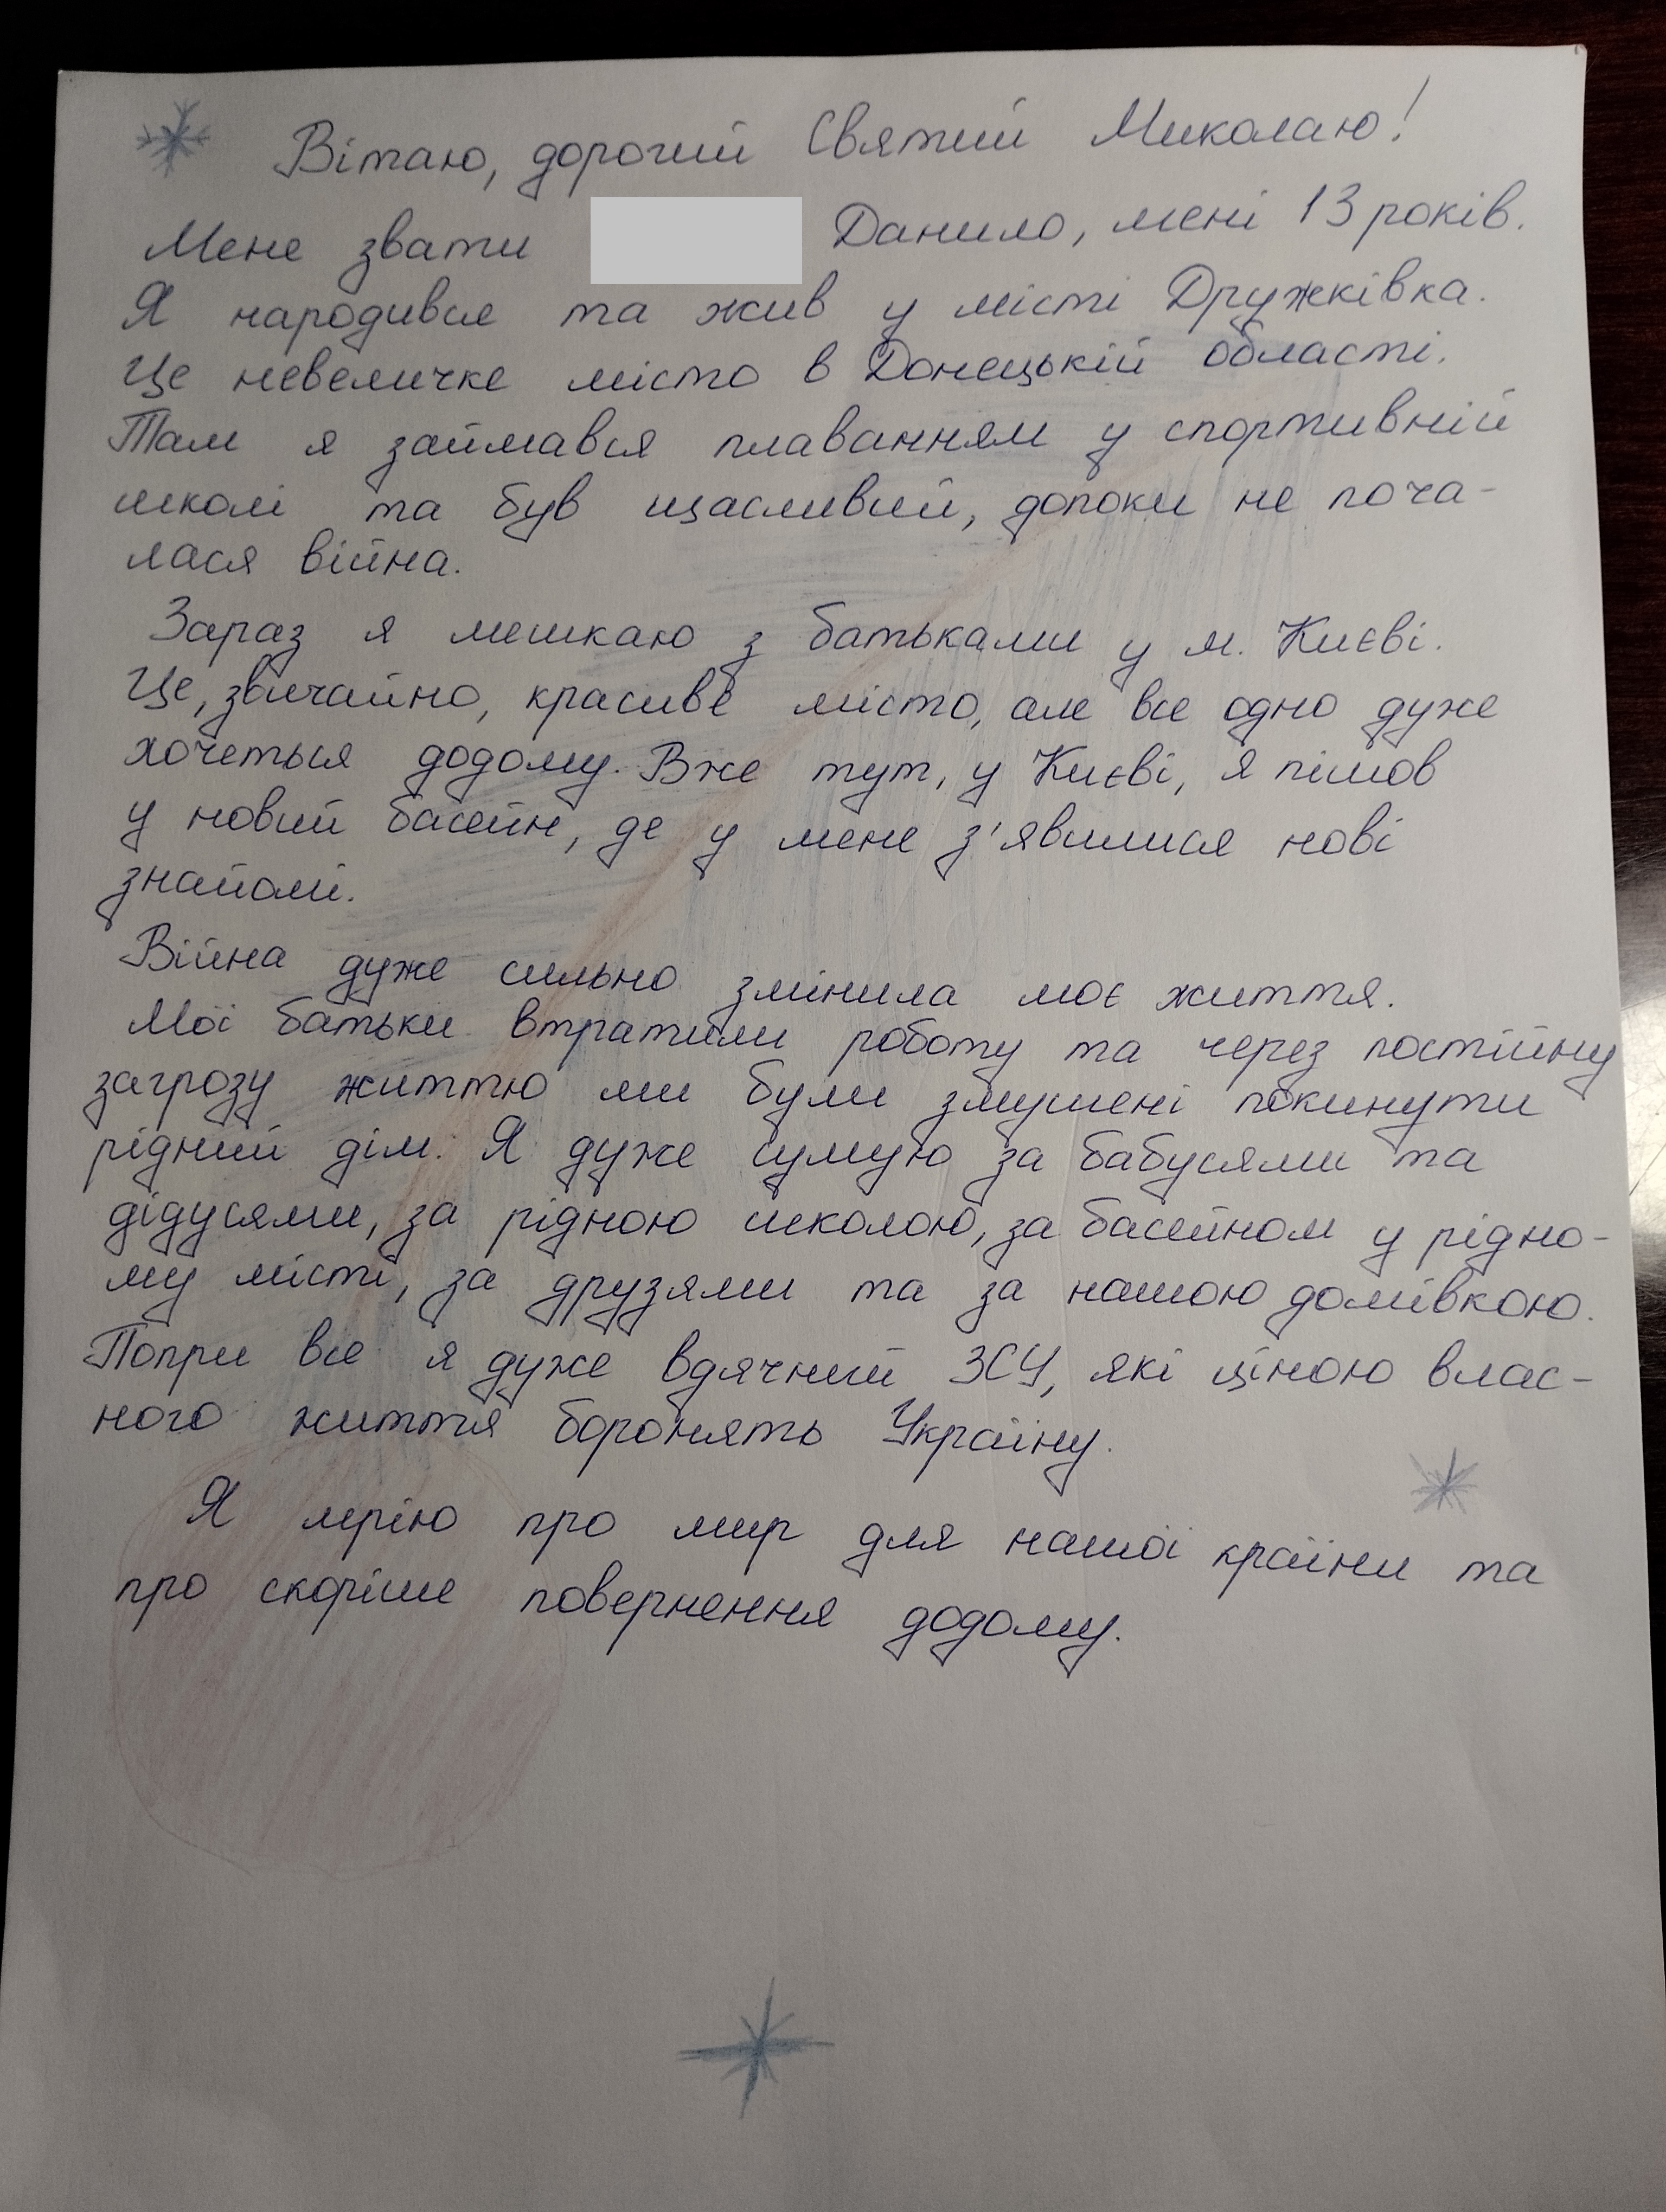 Вітаю, дорогий Святий Миколаю!
Мене звати Данило, мені 13 років.
Я народився та жив у місті Дружківка.
Це невеличке місто в Донецькій області.
Там я займався плаванням у спортивній
школі та був щасливий, допоки не поча-
лася війна.
Зараз я мешкаю з батьками у м. Києві.
Це, звичайно, красиве місто, але все одно дуже
хочеться додому. Вже тут, у Києві, я пішов
у новий басейн, де у мене з'явилися нові
знайомі.
Війна дуже сильно змінила моє життя.
Мої батьки втратили роботу та через постійну
загрозу життю ми були змушені покинути
рідний дім. Я дуже сумую за бабусями та
дідусями, за рідною школою, за басейном у рідно-
му місті, за друзями та за нашою домівкою.
Попри все я дуже вдячний ЗСУ, які ціною влас-
ного життя боронять Україну.
Я мрію про мир для нашої країни та
про скоріше повернення додому.